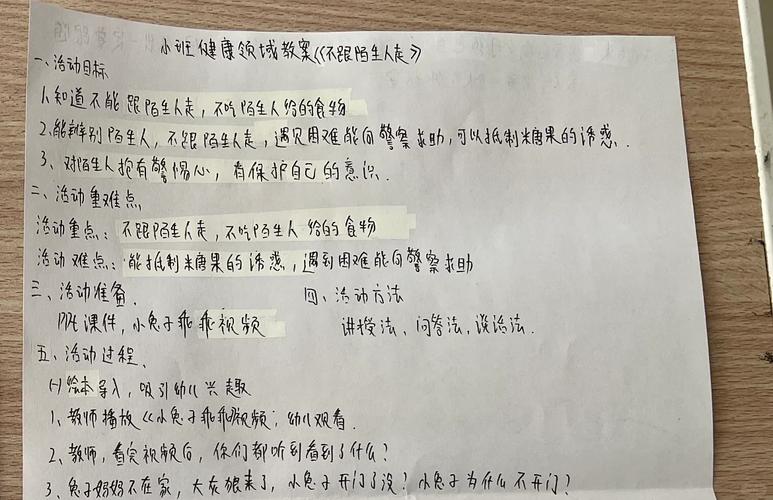 小班健康领域教案《不跟陌生人走》
一、活动目标
1、知道不能跟陌生人走，不吃陌生人给的食物
2、能辨别陌生人，不跟陌生人走，遇见困难能向警察求助，可以抵制糖果的诱惑.
3、对陌生人抱有警惕心，有保护自己的意识.
二、活动重难点
活动重点：不跟陌生人走，不吃陌生人给的食物
活动难点：能抵制糖果的诱惑，遇到困难能向警察求助
三、活动准备. 四、活动方法
PPT课件，小兔子乖乖视频 讲授法、问答法、谈话法.
五、活动过程、
(一)绘本导入，吸引幼儿兴趣
1、教师播放《小兔子乖乖》视频，幼儿观看.
2、教师，看完视频后，你们都听到看到了什么？
3、兔子妈妈不在家，大灰狼来了，小兔子开门了没？小兔子为什么不开门？